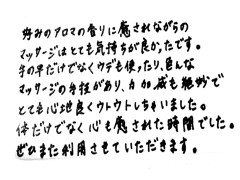 好みのアロマの香りに癒されながらの
マッサージはとても気持ちが良かったです。
手の平だけでなくウデも使ったり、色んな
マッサージの手技があり、力加減も絶妙で
とても心地良くウトウトしちゃいました。
体だけでなく心も癒された時間でした。
ぜひまた利用させていただきます。